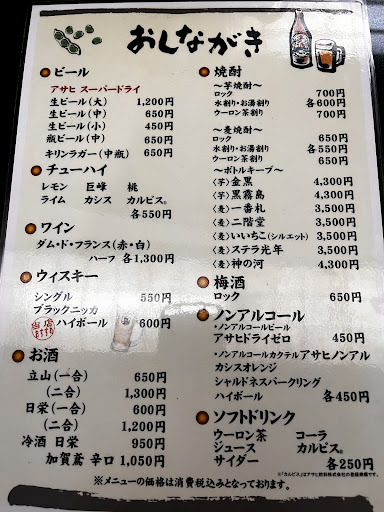 おしながき
ビール
アサヒ スーパードライ
生ビール(大) 1,200円
生ビール(中) 650円
生ビール(小) 450円
瓶ビール(中) 650円
キリンラガー(中瓶) 650円
チューハイ
レモン 巨峰 桃
ライム カシス カルピス®
各550円
ワイン
ダム・ド・フランス(赤・白)
ハーフ 各1,300円
ウィスキー
シングル 550円
ブラックニッカ
ハイボール 600円
お酒
立山(一合) 650円
(二合) 1,300円
日栄(一合) 600円
(二合) 1,200円
冷酒 日栄 950円
加賀鳶 辛口 1,050円
焼酎
〜芋焼酎〜
ロック 700円
水割り・お湯割り 各600円
ウーロン茶割り 700円
〜麦焼酎〜
ロック 650円
水割り・お湯割り 各550円
ウーロン茶割り 650円
〜ボトルキープ〜
〈芋〉金黒 4,300円
〈芋〉黒霧島 4,300円
〈麦〉一番札 3,500円
〈麦〉二階堂 3,500円
〈麦〉いいちこ(シルエット) 3,500円
〈麦〉ステラ光年 3,500円
〈麦〉神の河 4,300円
梅酒
ロック 650円
ノンアルコール
・ノンアルコールビール
アサヒドライゼロ 450円
・ノンアルコールカクテル アサヒノンアル
カシスオレンジ
シャルドネスパークリング
ハイボール 各450円
ソフトドリンク
ウーロン茶 コーラ
ジュース カルピス®
サイダー 各250円
※「カルピス」はアサヒ飲料株式会社の登録商標です。
※メニューの価格は消費税込みとなっております。